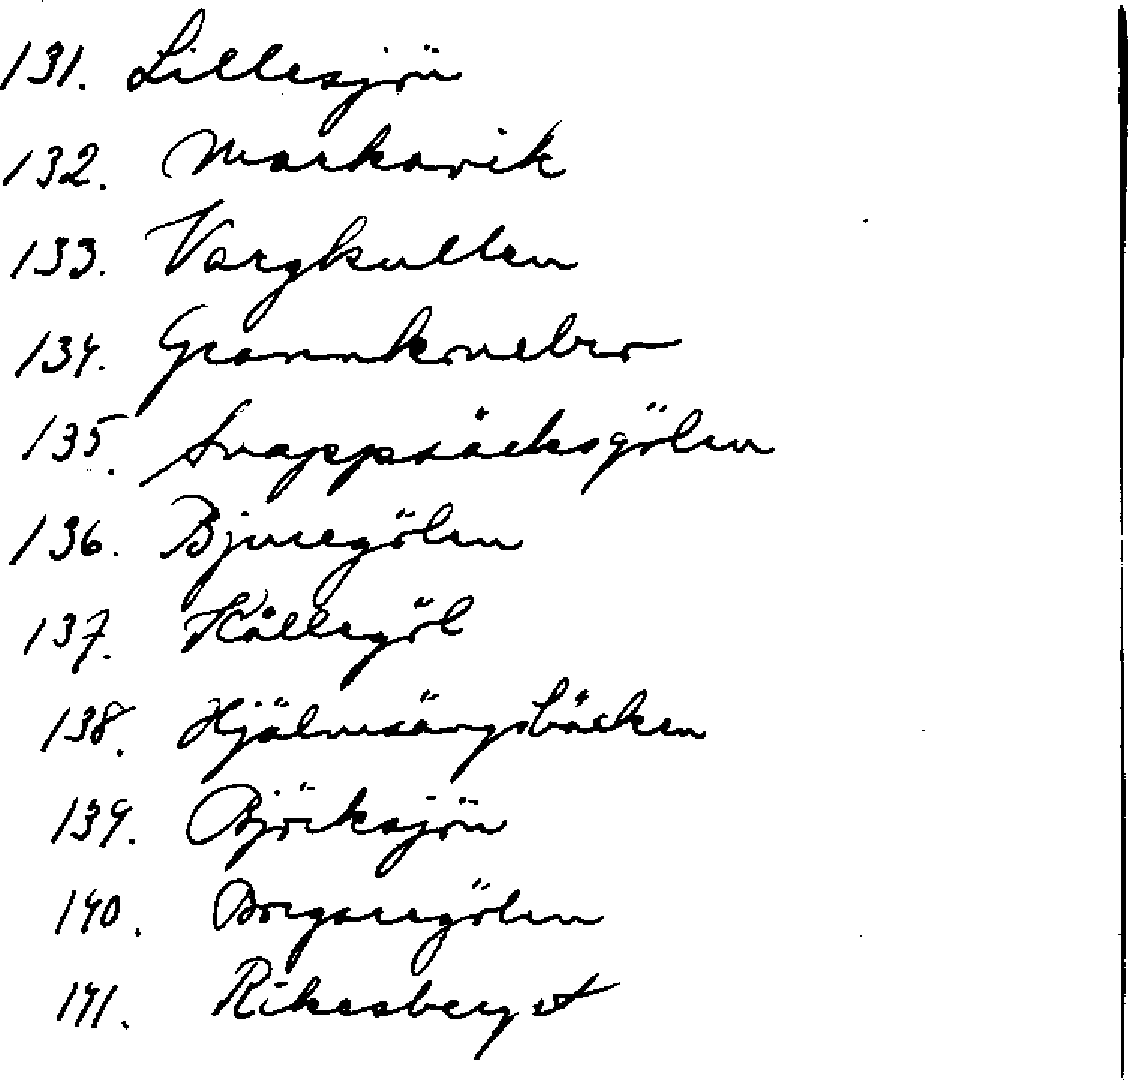 131. Lillesjön
132. Markavik
133. Vargkullen
134.
135. Snappsäcksgölen
136. Bjuregölen
137. Källegöl
138. Hjälmsängsbäcken
139. Björksjön
140. Borgaregölen
141. Rikesberget